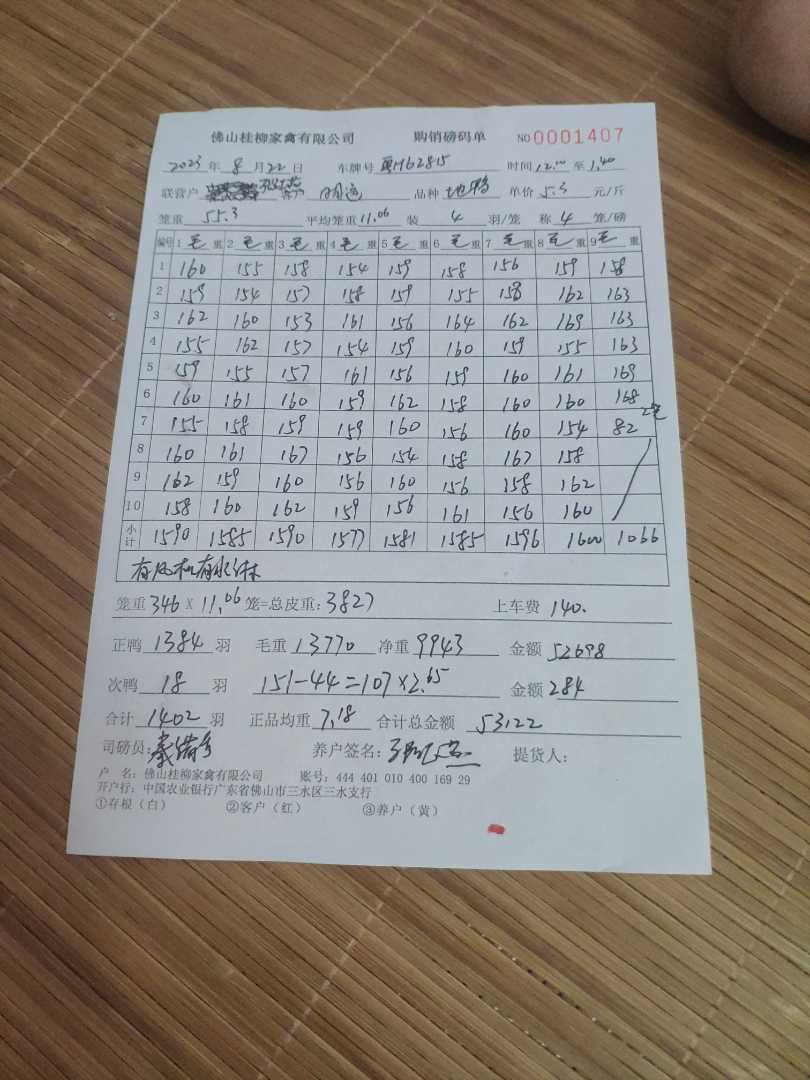 佛山桂柳家禽有限公司 购销磅码单 NO 0001407
2023年8月22日 车牌号 H62815 时间12.00至1.40
联营户 客户 明远 品种 地鸭 单价 5.3 元/斤
笼重 55.3 平均笼重11.06 装 4 羽/笼 称 4 笼/磅
编号 1毛重 2毛重 3毛重 4毛重 5毛重 6毛重 7毛重 8毛重 9毛重
1 160 155 158 154 159 158 156 159 158
2 159 154 157 158 159 155 158 162 163
3 162 160 153 161 156 164 162 169 163
4 155 162 157 154 159 160 159 155 163
5 159 155 157 161 156 159 160 161 169
6 160 161 160 159 162 158 160 160 168
7 155 158 159 159 160 156 160 154 82 2笼
8 160 161 167 156 154 158 167 158
9 162 159 160 156 160 156 158 162
10 158 160 162 159 156 161 156 160
小计 1590 1585 1590 1577 1581 1585 1596 1600 1066
有风机有水淋
笼重346×11.06笼=总皮重:3827 上车费 140.
正鸭 1384 羽 毛重 13770 净重 9943 金额 52698
次鸭 18 羽 151-44=107×2.65 金额 284
合计 1402 羽 正品均重 7.18 合计总金额 53122
司磅员: 养户签名: 提货人:
户 名:佛山桂柳家禽有限公司 账号:444 401 010 400 169 29
开户行:中国农业银行广东省佛山市三水区三水支行
①存根(白) ②客户(红) ③养户(黄)